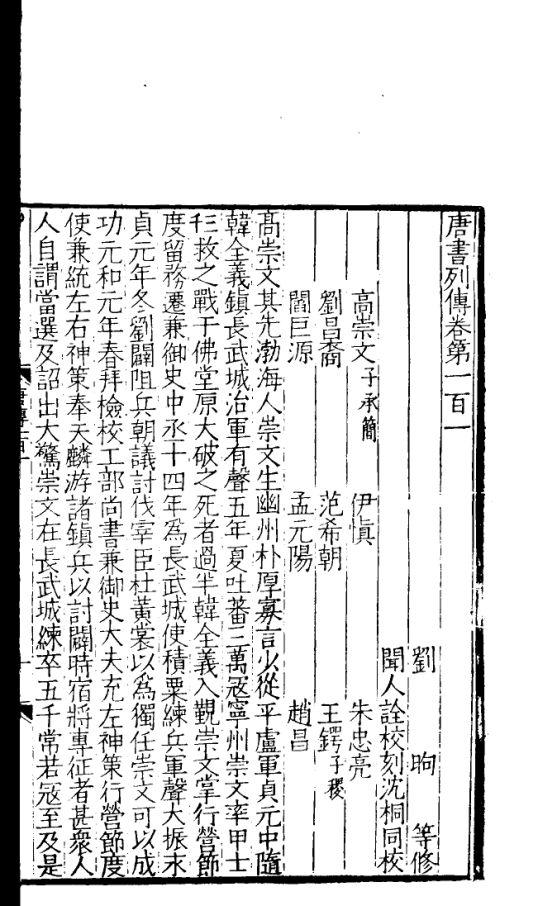 唐書列傳卷第一百一
劉 昫 等修
聞人詮校刻沈桐同校
高崇文子承簡 伊愼 朱忠亮
劉昌裔 范希朝 王鍔子稷
閻巨源 孟元陽 趙昌
高崇文其先渤海人崇文生幽州朴厚寡言少從平盧軍貞元中隨
韓全義鎮長武城治軍有聲五年夏吐蕃三萬寇寧州崇文率甲士
三千救之戰于佛堂原大破之死者過半韓全義入覲崇文掌行營節
度留務遷兼御史中丞十四年為長武城使積粟練兵軍聲大振末
貞元年冬劉闢阻兵朝議討伐宰臣杜黃裳以為獨任崇文可以成
功元和元年春拜檢校工部尚書兼御史大夫充左神策行營節度
使兼統左右神策奉天麟游諸鎮兵以討闢時宿將專征者甚衆人
人自謂當選及詔出大驚崇文在長武城練卒五千常若寇至及是